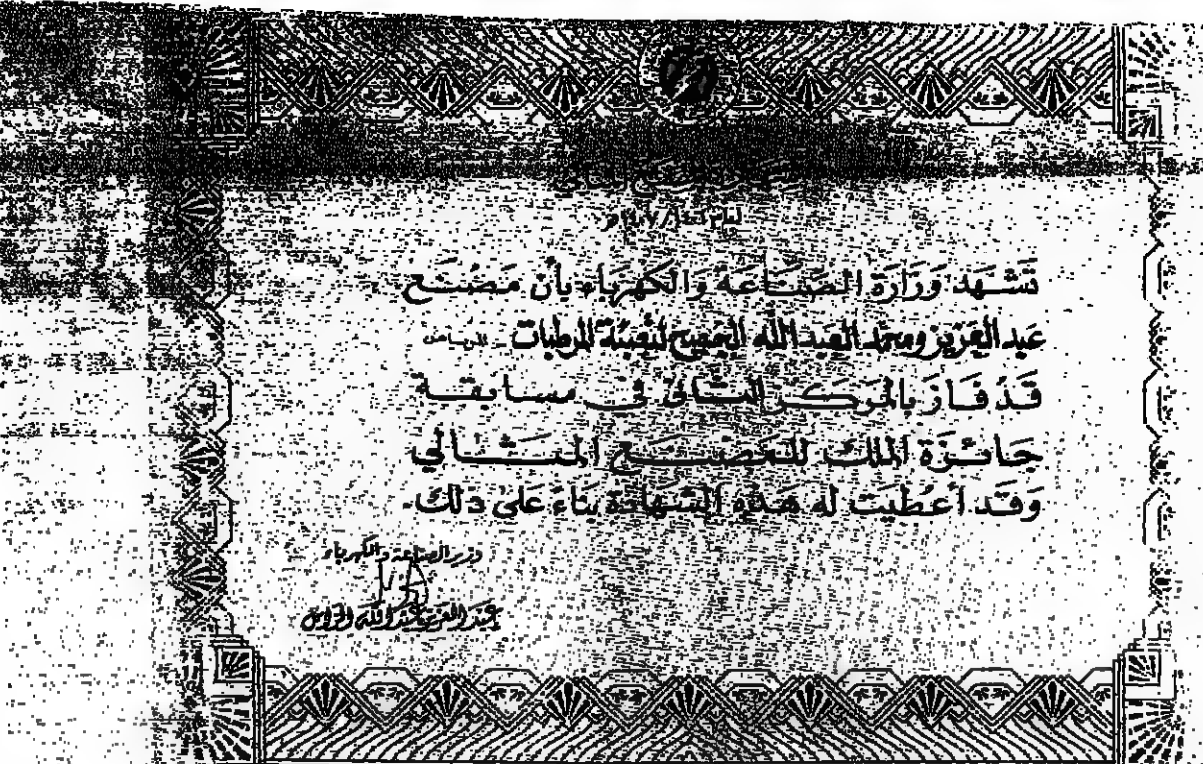 تَشْهَد وَزَارَة الصِّنَاعَة وَالكَهْرَبَاء بأن مَصْنَع
عبد العزيز ومحمد العبدالله الجميح لتعبئة المرطبات - الرياض
قَدْ فَازَ بالمَركَز الثَّانِى فى مسابقة
جَائزَة الملك للمصنع المثَالي
وَقَد أعْطيَت له هَذِه الشهَادَة بنَاءً عَلى ذلكَ.
وزير الصناعة والكهرباء
عبد العزيز عبد الله الزامل